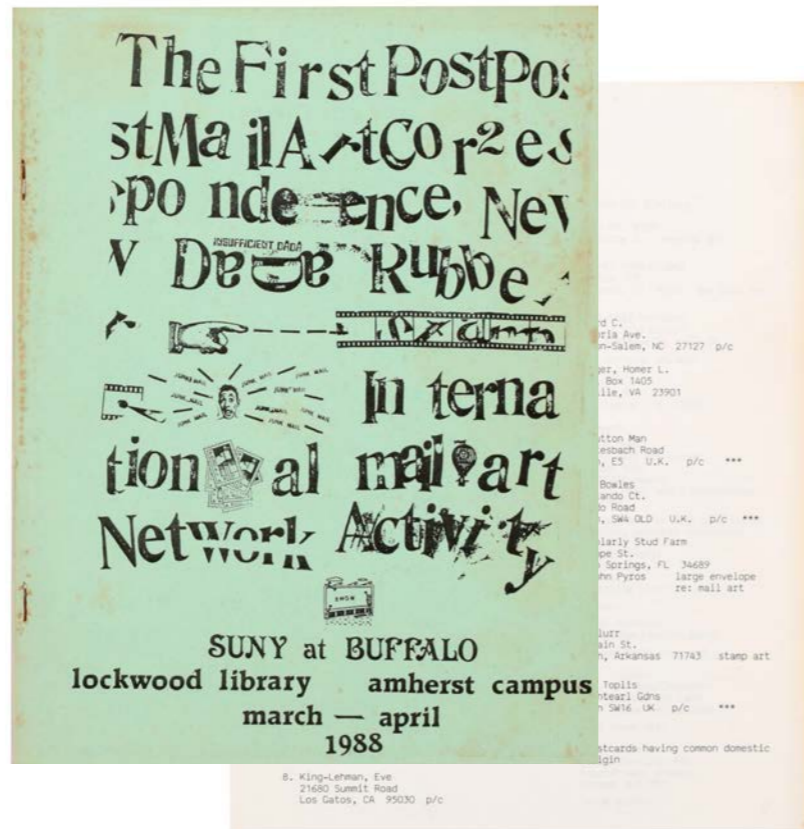 The First PostPos
stMailArtCor2es
spo nde ence, Nev
INSUFFICIENT DADA
v DaDa Rubbe
r
In terna
tion al mail art
Network Activity
SHOW
SUNY at BUFFALO
lockwood library amherst campus
march — april
1988
rd C.
ria Ave.
n-Salem, NC 27127 p/c
er, Homer L.
Box 1405
ile, VA 23901
utton Man
esbach Road
, E5 U.K. p/c ***
Bowles
ando Ct.
o Road
, SW4 OLD U.K. p/c ***
larly Stud Farm
pe St.
Springs, FL 34689
ohn Pyros large envelope
re: mail art
lurr
ain St.
n, Arkansas 71743 stamp art
Toplis
ntearl Gdns
n SW16 UK p/c ***
stcards having common domestic
igin
8. King-Lehman, Eve
21680 Summit Road
Los Gatos, CA 95030 p/c